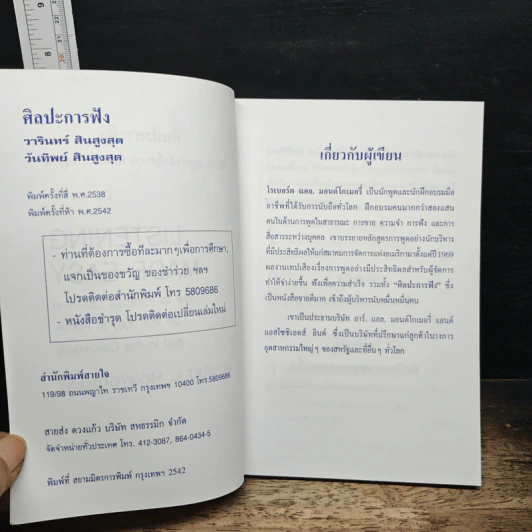 ศิลปะการฟัง
วารินทร์ สินสูงสุด
วันทิพย์ สินสูงสุด
พิมพ์ครั้งที่สี่ พ.ศ.2538
พิมพ์ครั้งที่ห้า พ.ศ.2542
- ท่านที่ต้องการซื้อทีละมากๆเพื่อการศึกษา,
แจกเป็นของขวัญ ของชำร่วย ฯลฯ
โปรดติดต่อสำนักพิมพ์ โทร 5809686
- หนังสือชำรุด โปรดติดต่อเปลี่ยนเล่มใหม่
สำนักพิมพ์สายใจ
119/98 ถนนพญาไท ราชเทวี กรุงเทพฯ 10400 โทร.5809686
สายส่ง ดวงแก้ว บริษัท สหธรรมิก จำกัด
จัดจำหน่ายทั่วประเทศ โทร. 412-3087, 864-0434-5
พิมพ์ที่ สยามมิตรการพิมพ์ กรุงเทพฯ 2542
เกี่ยวกับผู้เขียน
โรเบอร์ต แอล. มอนต์โกเมอรี่ เป็นนักพูดและนักฝึกอบรมมือ
อาชีพที่ได้รับการนับถือทั่วโลก ฝึกอบรมคนมากกว่าสองแสน
คนในด้านการพูดในสาธารณะ การขาย ความจำ การฟัง และการ
สื่อสารระหว่างบุคคล เขาบรรยายหลักสูตรการพูดอย่างนักบริหาร
ที่มีประสิทธิผลให้แก่สมาคมการจัดการแห่งอเมริกามาตั้งแต่ปี 1969
ผลงานเทปเสียงเรื่องการพูดอย่างมีประสิทธิผลสำหรับผู้จัดการ
ทำให้จำง่ายขึ้น ฟังเพื่อความสำเร็จ รวมทั้ง "ศิลปะการฟัง" ซึ่ง
เป็นหนังสือขายดีมาก เข้าถึงผู้บริหารนับหมื่นหมื่นคน
เขาเป็นประธานบริษัท อาร์. แอล. มอนต์โกเมอรี่ แอนด์
แอสโซซิเอตส์ อิงค์ ซึ่งเป็นบริษัทที่ปรึกษาแก่ลูกค้าในวงการ
อุตสาหกรรมใหญ่ๆ ของสหรัฐและที่อื่นๆ ทั่วโลก
9
8
22
21
20